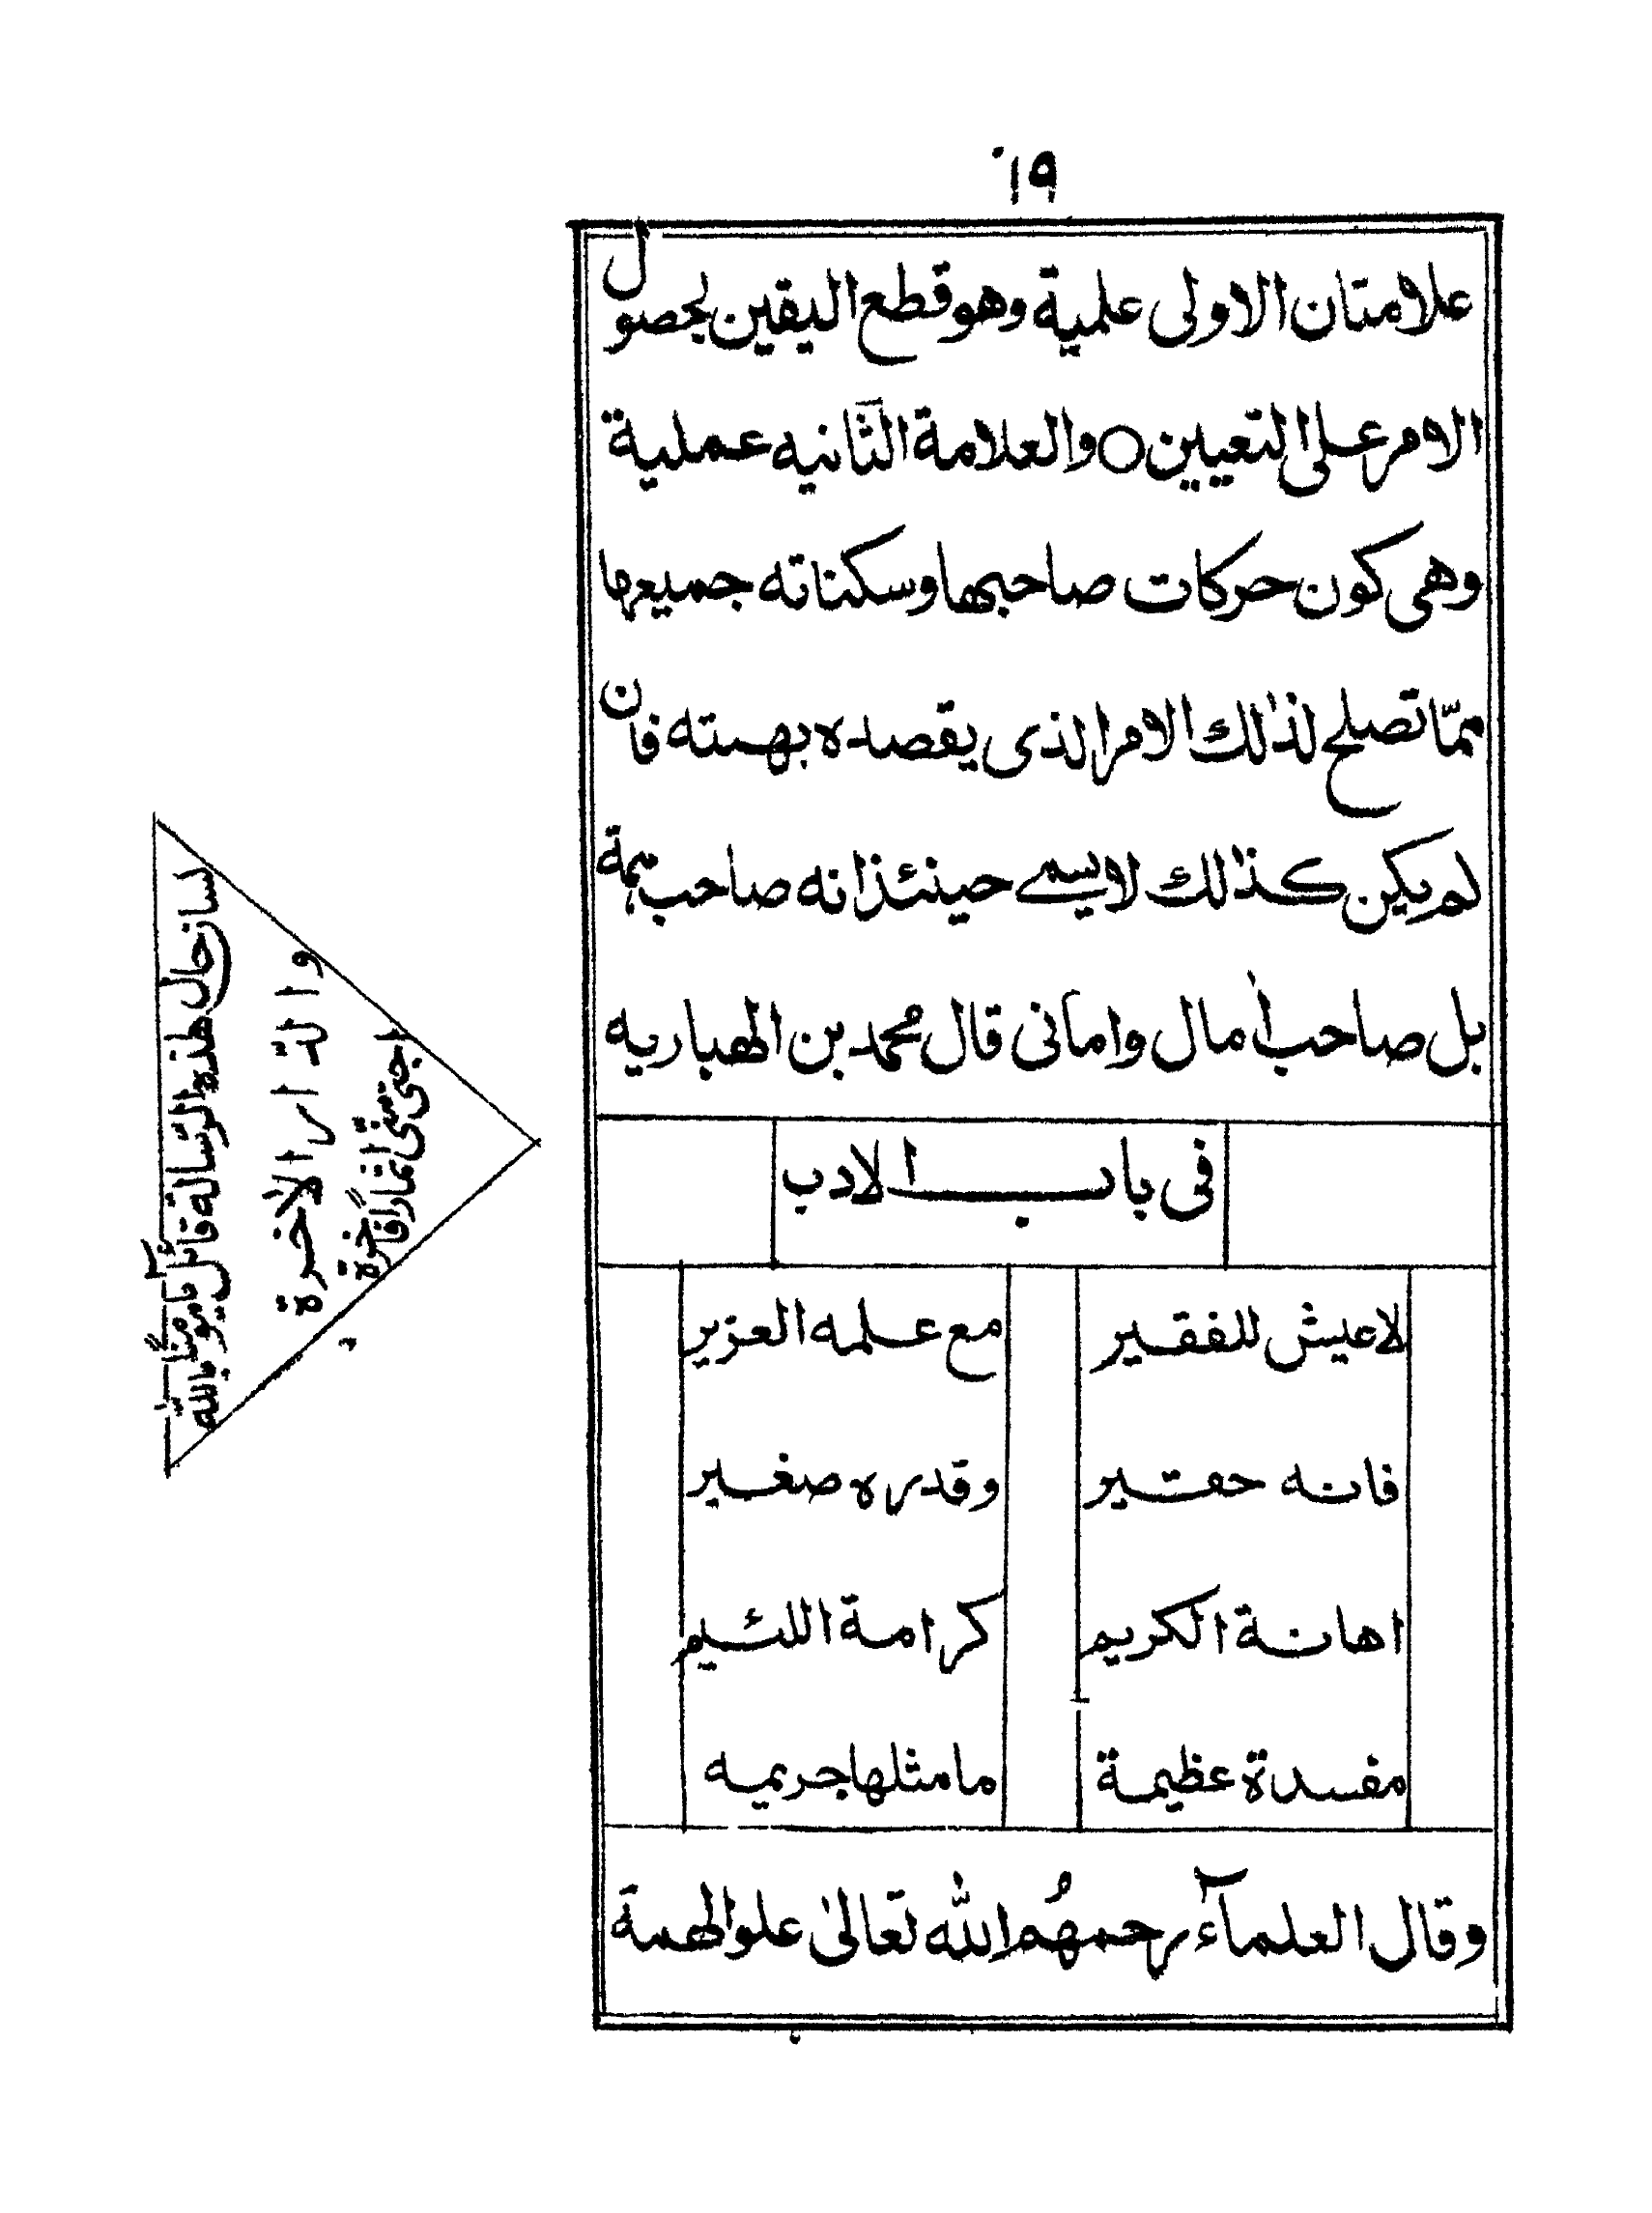 ١٩
علامتان الاولى علمية وهو قطع اليقين بحصول
الامر على التعيين ○ والعلامة الثانيه عملية
وهى كون حركات صاحبها وسكناته جميعها
ممّا تصلح لذٰلك الامر الذى يقصده بهمته فان
لم يكن كذٰلك لا يسمى حينئذ انه صاحب همة
بل صاحب اٰمال وامانى قال محمد بن الهباريه
فى باب الادب
لا عيش للفقير مع علمه العزير
فانه حقير وقدره صغير
اهانة الكريم كرامة اللئيم
مفسدة عظيمة ما مثلها جريمه
وقال العلمآء رحمهُم الله تعالىٰ علو الهمة
لسان حال هٰذه الرّسالة قائل يا مؤمنًا بالله
والدّار الاخرة
اجتى منّى ثمارًا فاخرة